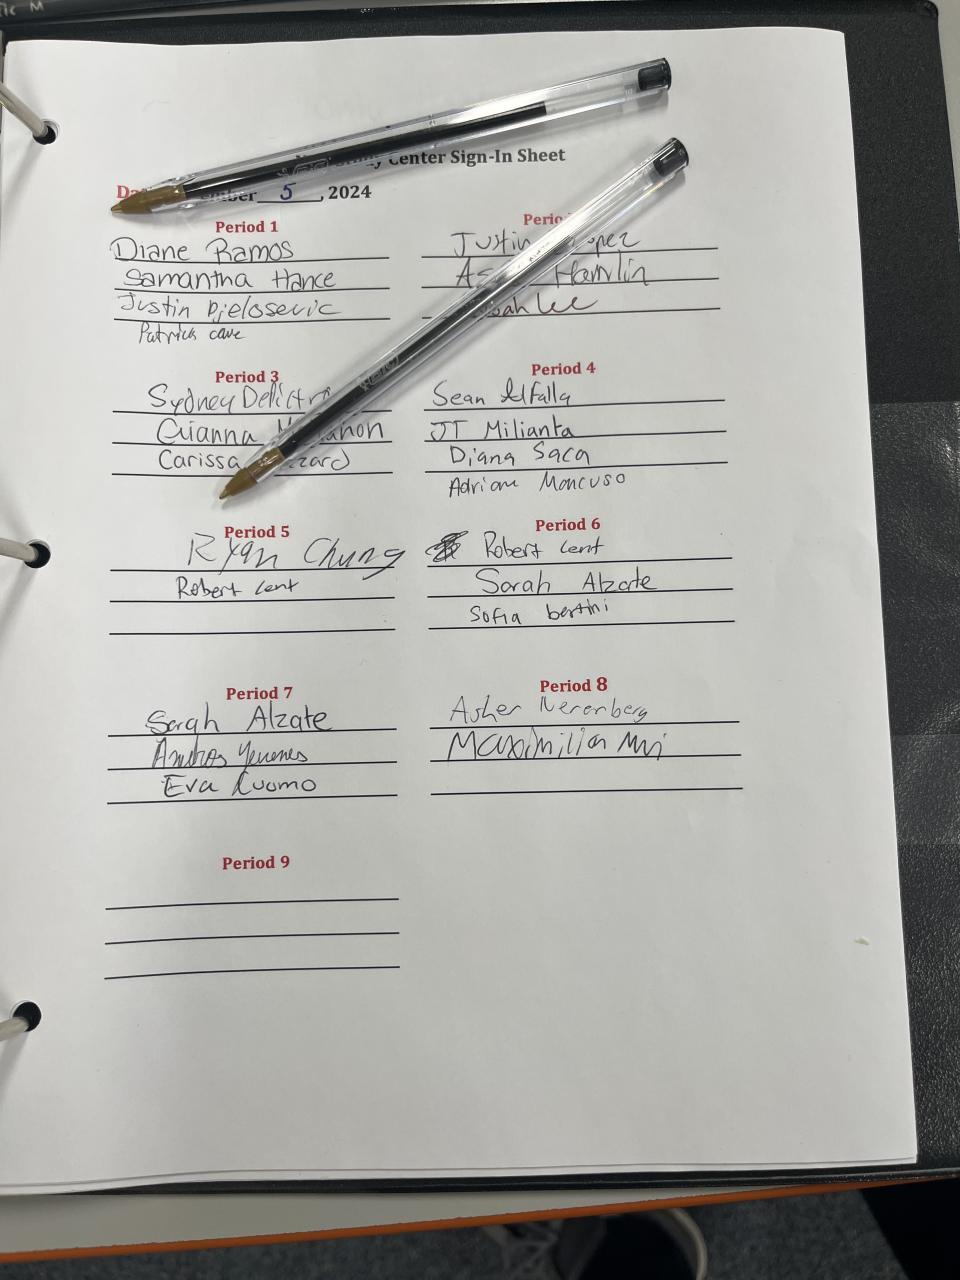 Center Sign-In Sheet
5, 2024
Period 1
Diane Ramos
Samantha Hance
Justin Djelosevic
Patrick cave
Justin
Hamlin
Lee
Period 3
Sydney
Gianna
Carissa
Period 4
Sean Alfalla
JT Milianta
Diana Saca
Adriana Mancuso
Period 5
Ryan Chung
Robert Lent
Period 6
Robert Lent
Sarah Alzate
Sofia bertini
Period 7
Sarah Alzate
Eva Cuomo
Period 8
Asher Nerenberg
Maximilian
Period 9